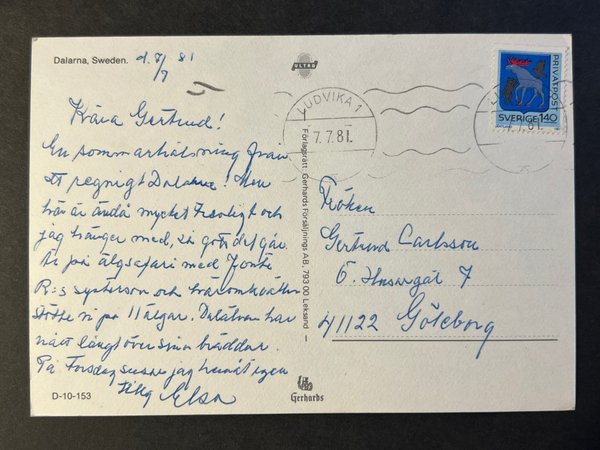 Dalarna, Sweden. d. 7/7 81
ULTRA
Kära Gertrud!
En sommarhälsning från
ett regnigt Dalarna! Men
här är ändå mycket trevligt och
jag hänger med, så gott det går.
på älgsafari med
R:s systerson och häromkvällen
stötte vi på 11 älgar. Dalälven har
nått långt över sina bräddar.
På Torsdag susar jag hemåt igen
Elsa
D-10-153
Förlagsrätt Gerhards Försäljnings AB, 793 00 Leksand
Gerhards
LUDVIKA 1
7.7.81.
LUDVIKA
7.7.81.
PRIVATPOST
SVERIGE 140
Fröken
Gertrud Carlsson
Ö. Husargat 7
41122 Göteborg